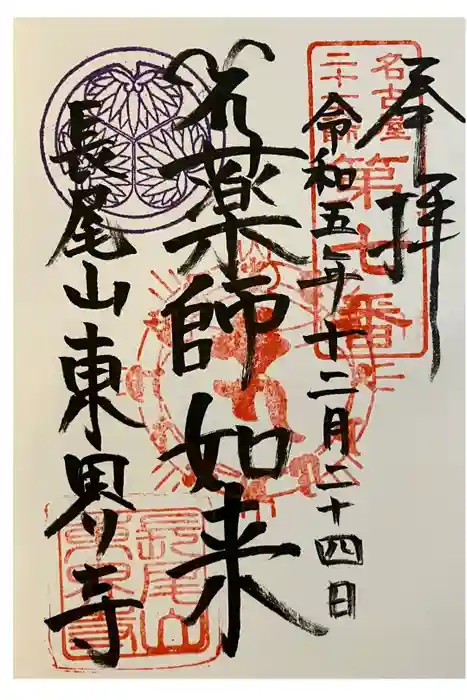 奉拝
名古屋
二十一
第七番
令和五年十二月二十四日
薬師如来
長尾山東界寺
長尾山